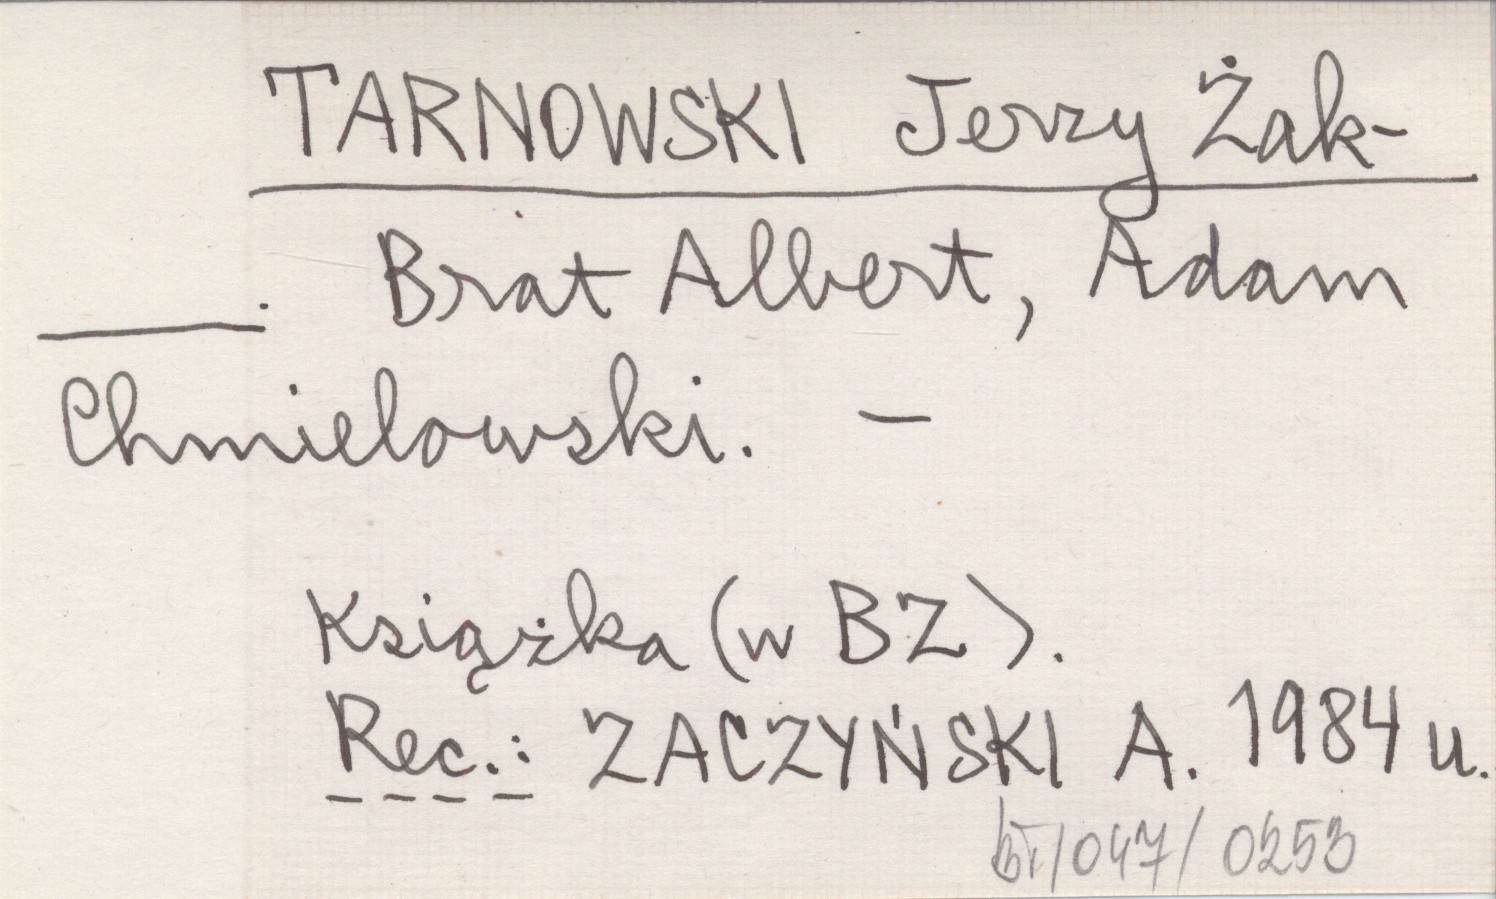 TARNOWSKI Jerzy Żak-
. Brat Albert, Adam
Chmielowski. –
Książka (w BZ).
Rec.: ZACZYŃSKI A. 1984 u.
bt/047/0253